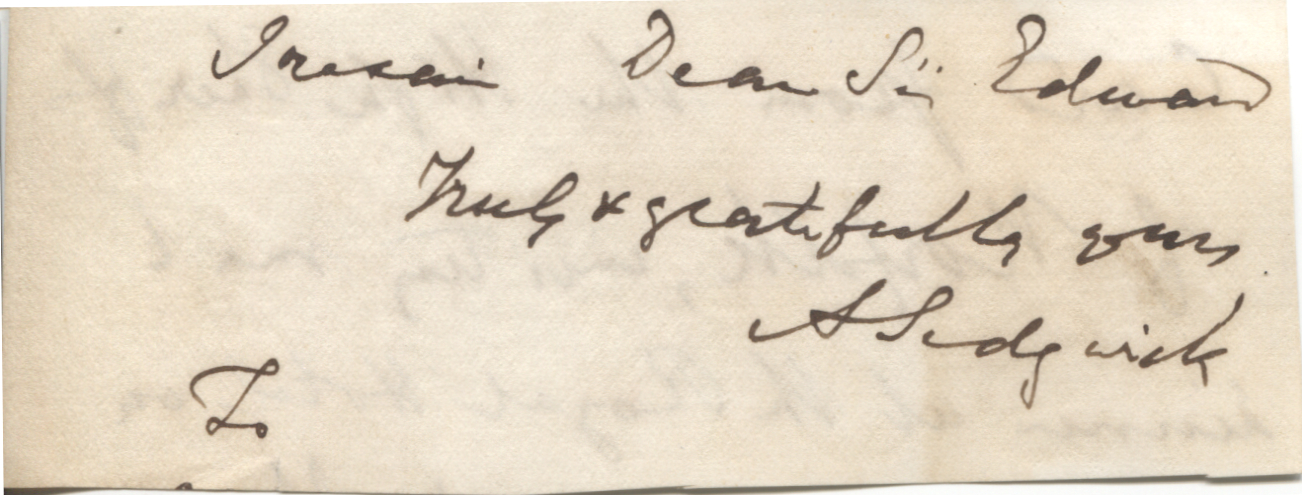 I remain Dear Sir Edward
Truly & gratefully yours
A Sedgwick
To